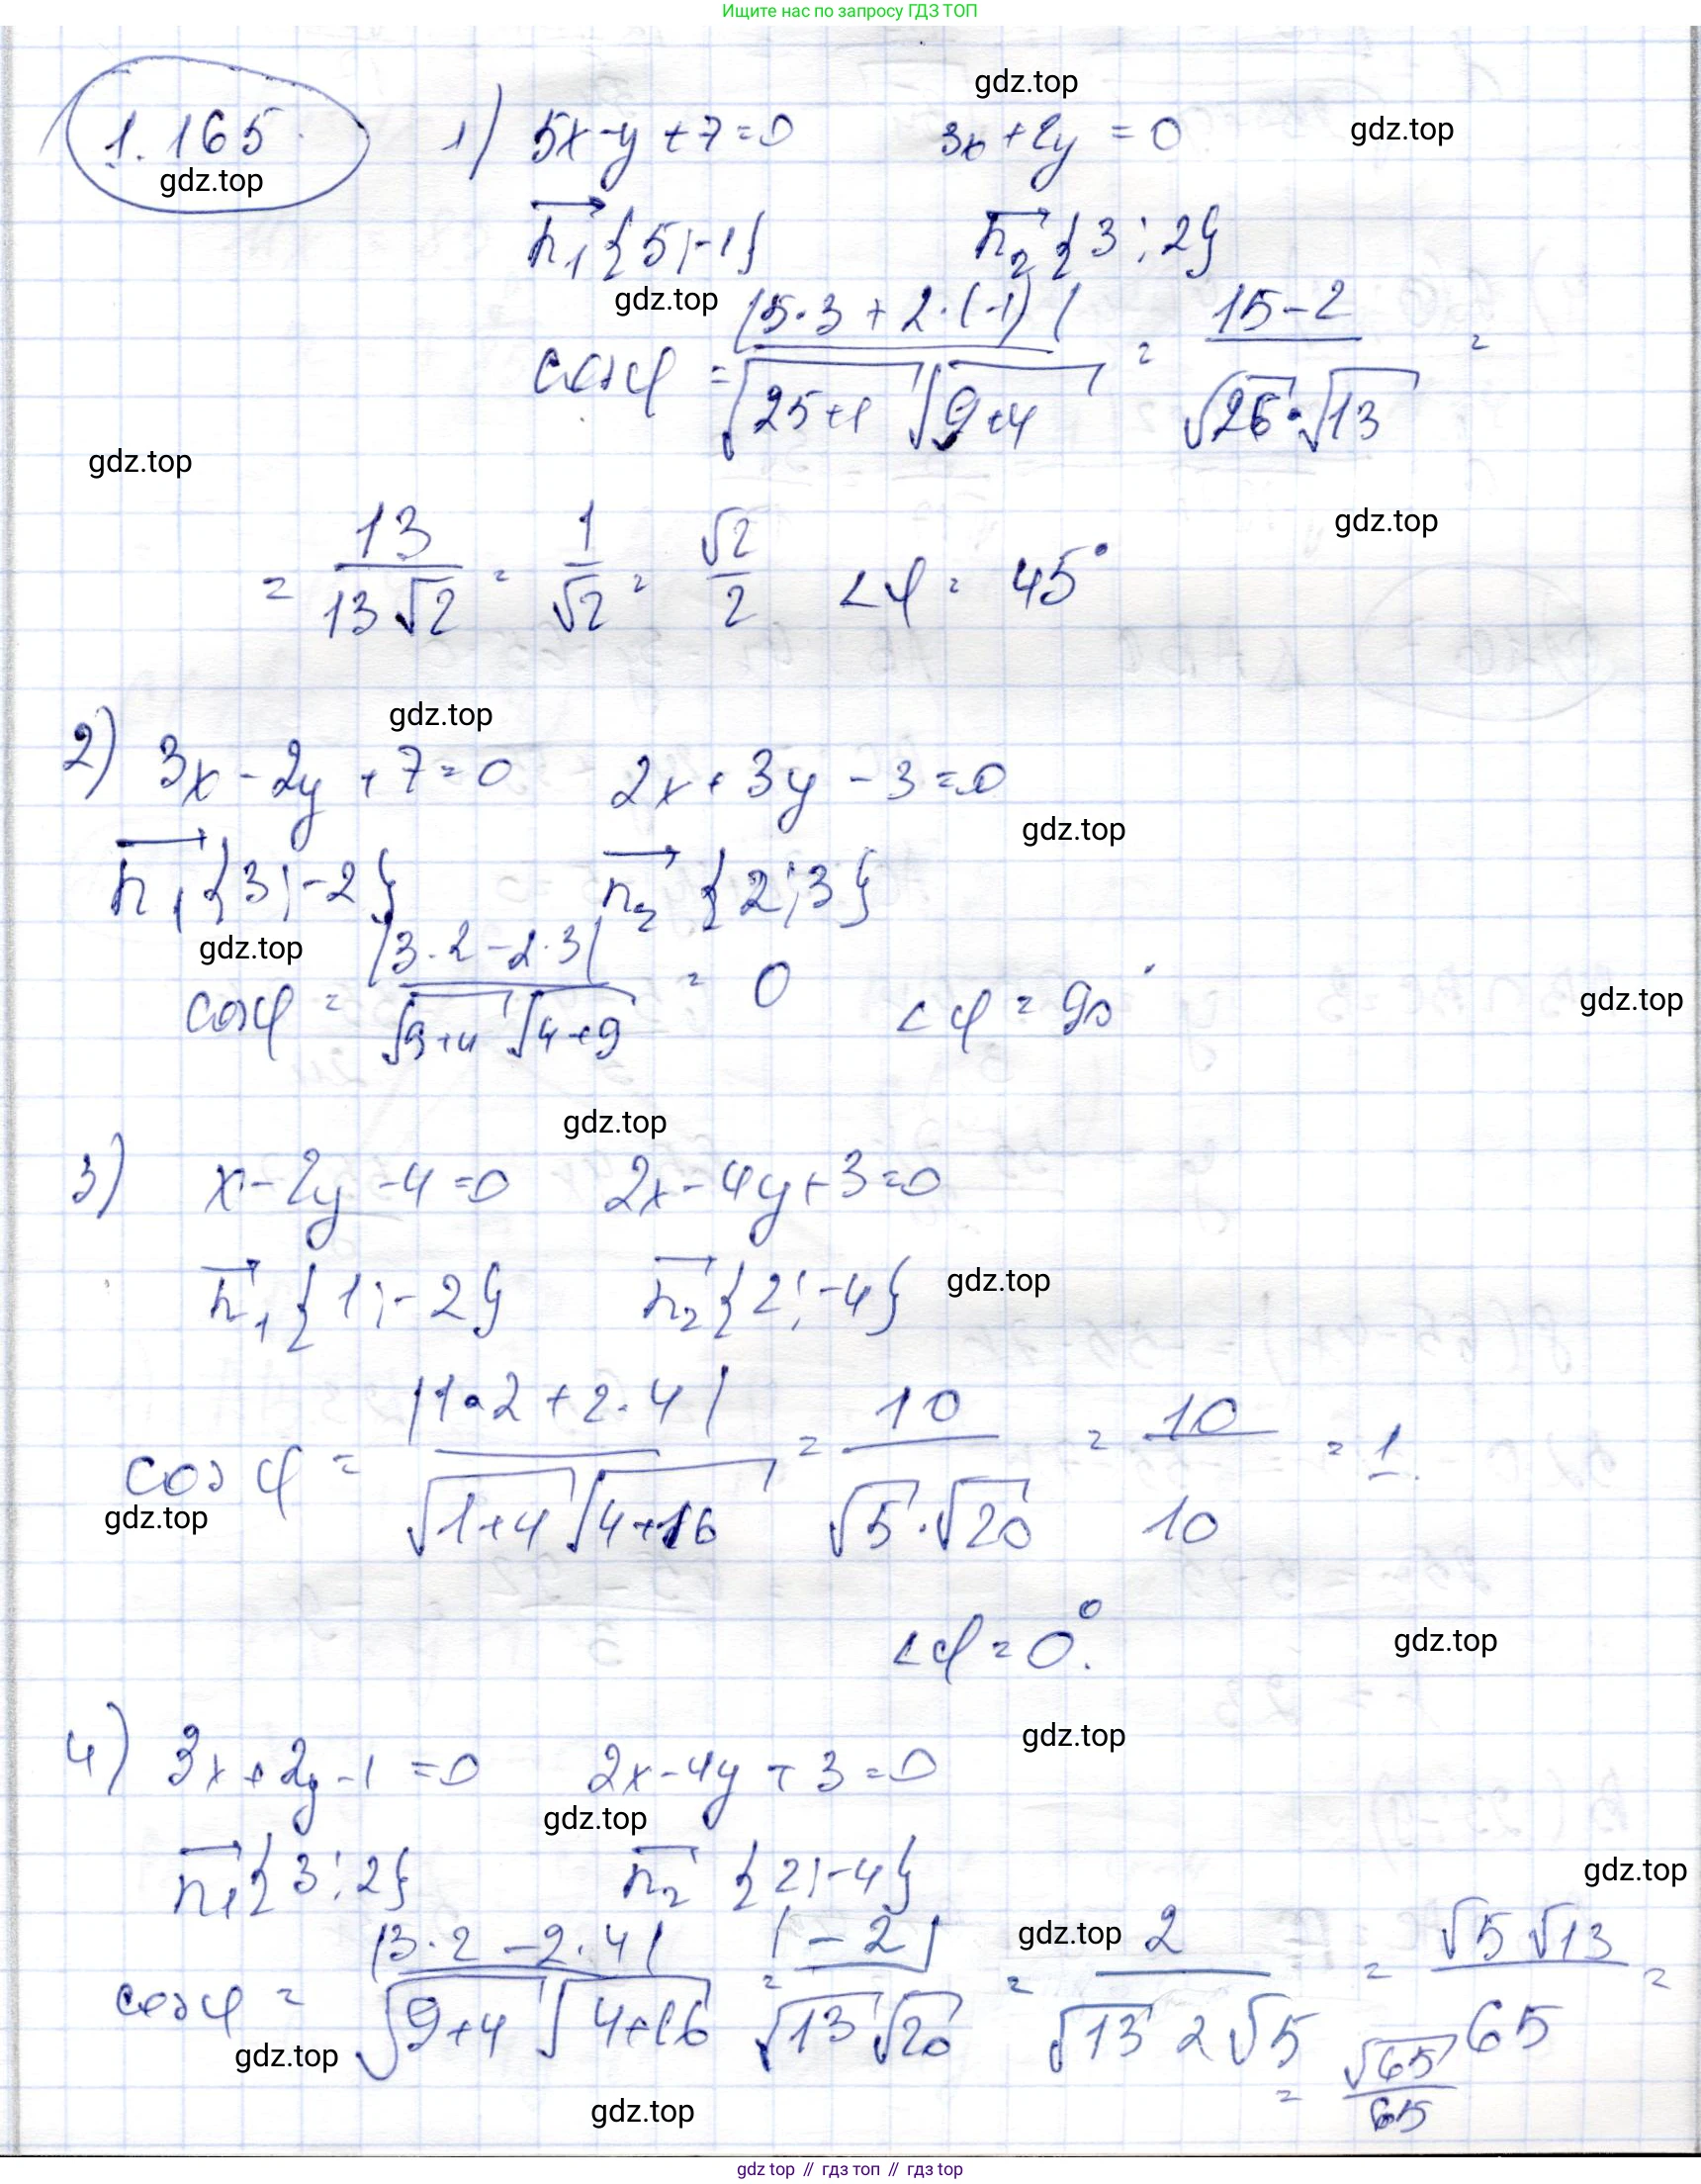 Ищите нас по запросу ГДЗ ТОП
gdz.top
1.165. 1) 5x-y+7=0 3x+2y=0 gdz.top
gdz.top
n₁{5;-1} n₂{3;2}
gdz.top
cosφ = |5·3+2·(-1)| / √25+1 √9+4 = 15-2 / √26·√13 =
gdz.top
gdz.top
= 13 / 13√2 = 1/√2 = √2/2 ∠φ = 45°
gdz.top
2) 3x-2y+7=0 2x+3y-3=0
gdz.top
n₁{3;-2} n₂{2;3}
gdz.top
cosφ = |3·2-2·3| / √9+4 √4+9 = 0 ∠φ = 90°
gdz.top
gdz.top
3) x-2y-4=0 2x-4y+3=0
n₁{1;-2} n₂{2;-4} gdz.top
cosφ = |1·2+2·4| / √1+4 √4+16 = 10 / √5·√20 = 10/10 = 1.
gdz.top
∠φ = 0°. gdz.top
gdz.top
4) 3x+2y-1=0 2x-4y+3=0
gdz.top
n₁{3;2} n₂{2;-4} gdz.top
gdz.top
cosφ = |3·2-2·4| / √9+4 √4+16 = |-2| / √13 √20 = 2 / √13 2√5 = √5 √13 / 65 =
gdz.top
= √65/65
gdz.top
gdz top // гдз топ // гдз top